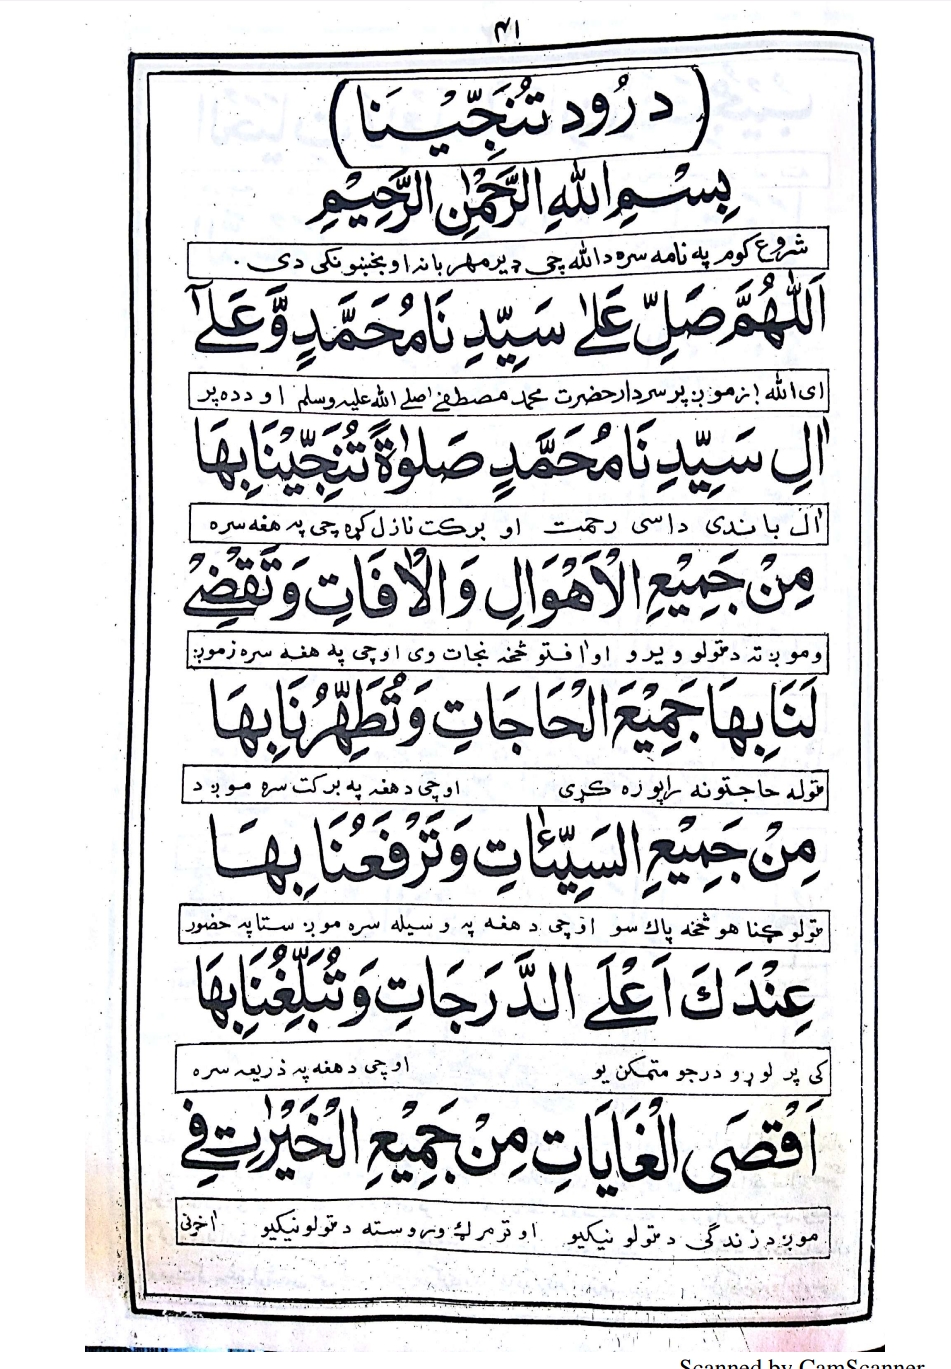 ۴۱
(درُود تُنَجِّيْنَا)
بِسْمِ اللهِ الرَّحْمٰنِ الرَّحِيْمِ
شروع کوم په نامه سره دالله چی ډیر مهربانه او بخښونکی دی .
اَللّٰهُمَّ صَلِّ عَلٰى سَيِّدِنَا مُحَمَّدٍ وَّعَلٰٓى
ای الله! زموږ پر سردار حضرت محمد مصطفٰے صلے الله علیه وسلم او دده پر
اٰلِ سَيِّدِنَا مُحَمَّدٍ صَلٰوةً تُنَجِّيْنَا بِهَا
اٰل باندی داسی رحمت او برکت نازل کړه چی په هغه سره
مِنْ جَمِيْعِ الْاَهْوَالِ وَالْاٰفَاتِ وَتَقْضِيْ
وموږ ته د ټولو ویرو او اٰفتو څخه نجات وی او چی په هغه سره زموږ
لَنَا بِهَا جَمِيْعَ الْحَاجَاتِ وَتُطَهِّرُنَا بِهَا
ټوله حاجتونه راپوره کړی او چی دهغه په برکت سره موږ د
مِنْ جَمِيْعِ السَّيِّئَاتِ وَتَرْفَعُنَا بِهَا
ټولو ګناهو څخه پاك سو او چی د هغه په وسیله سره موږ ستا په حضور
عِنْدَكَ اَعْلَى الدَّرَجَاتِ وَتُبَلِّغُنَا بِهَا
کی پر لوړو درجو متمکن یو او چی دهغه په ذریعه سره
اَقْصَى الْغَايَاتِ مِنْ جَمِيْعِ الْخَيْرٰتِ فِي
موږ د زندگی د ټولو نیکیو او تر مرګ وروسته د ټولو نیکیو اٰخرنی
Scanned by CamScanner